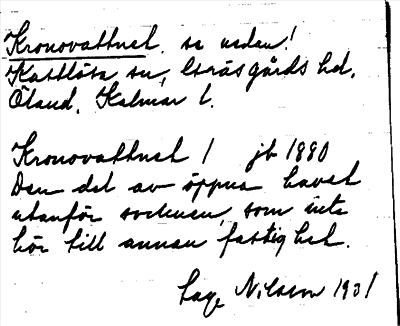 Kronovattnet, se nedan!
Kastlösa sn, Gräsgårds hd,
Öland, Kalmar l.
Kronovattnet / jb 1880
Den del av öppna havet
utanför socknen, som inte
hör till annan fastighet.
Lage Nilsson 1931